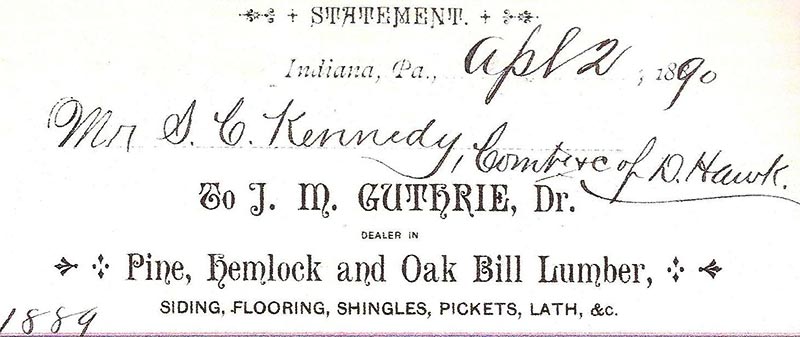 STATEMENT.
Indiana, Pa., Apl 2, 1890
Mr S. C. Kennedy, of D. Hawk.
To J. M. GUTHRIE, Dr.
DEALER IN
Pine, Hemlock and Oak Bill Lumber,
SIDING, FLOORING, SHINGLES, PICKETS, LATH, &c.
1889